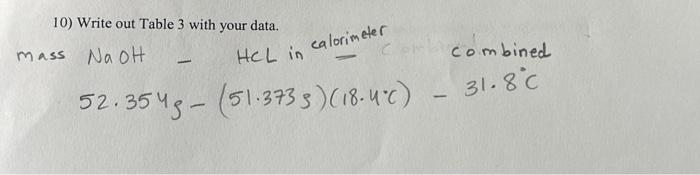 10) Write out Table 3 with your data.
mass NaOH - HCL in calorimeter - combined
52.354g - (51.373g)(18.4°C) - 31.8°C